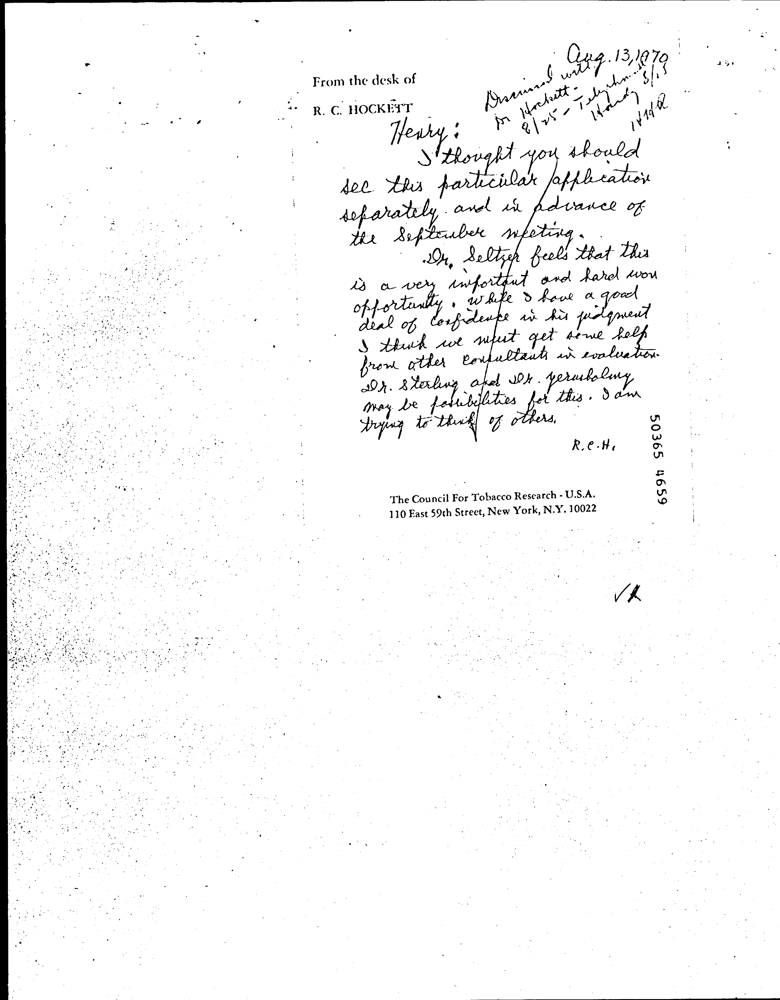 Aug. 13, 1970
From the desk of
R. C. HOCKETT
Discussed with
Dr Hockett -
8/25 -
Henry:
I thought you should
see this particular application
separately and in advance of
the September meeting.
Dr. Seltzer feels that this
is a very important and hard won
opportunity. While I have a good
deal of confidence in his judgment
I think we must get some help
from other consultants in evaluation.
Dr. Sterling and Dr.
may be possibilities for this. I am
trying to think of others.
R.C.H.
50365 4659
The Council For Tobacco Research - U.S.A.
110 East 59th Street, New York, N.Y. 10022